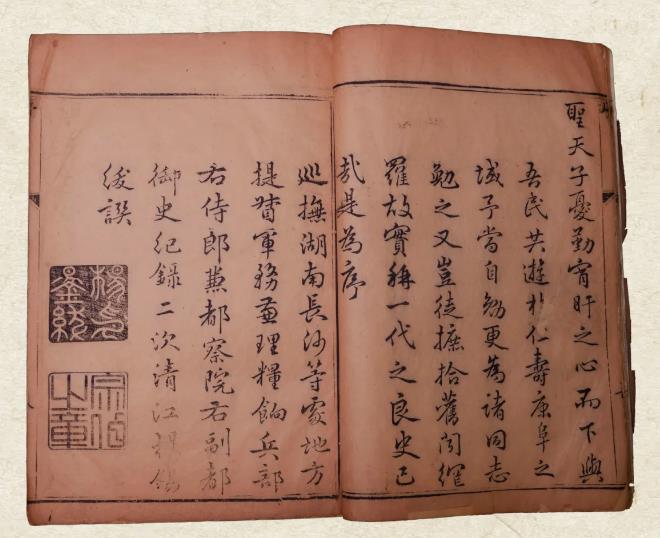 聖天子憂勤宵旰之心而下與
吾民共遊於仁壽康阜之
域予當自勉更為諸同志
勉之又豈徒摭拾舊聞網
羅故實稱一代之良史已
哉是為序
巡撫湖南長沙等處地方
提督軍務兼理糧餉兵部
右侍郎兼都察院右副都
御史紀錄二次清江楊錫
紱譔
宗伯之章